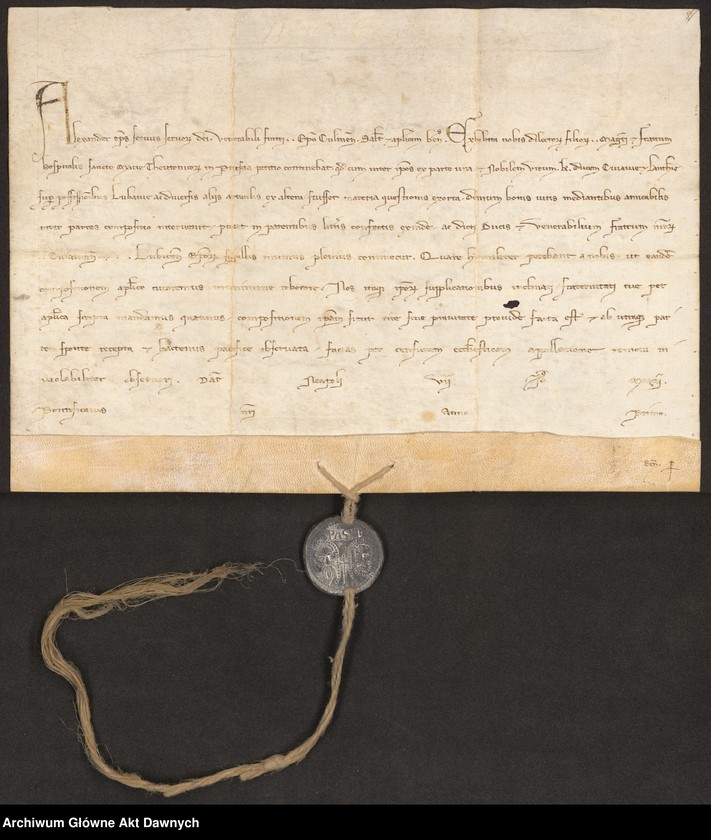 Alexander eps seruus seruor dei. Venerabili fratri . . Epo Culmen. Salt et aplicam ben. Exhibita nobis dilector filior . . Magri et fratrum
hospitalis sancte Marie Theutonicor in Prussia petitio continebat qd cum inter ipsos ex parte una et Nobilem virum K. ducem Cuiauie et Lanchie
sup possessionibus Lubauie ac diuersis aliis articulis ex altera fuisset materia questionis exorta. demum bonis uiris mediantibus amicabilis
inter partes compositio interuenit, prout in patentibus litteris confectis exinde, ac dicti Ducis et Venerabilium fratrum nror
sigillis munitis plenius continetur. Quare humiliter petebant a nobis, ut eandem
compositionem aplico curaremus munimine roborare. Nos itaq ipsor supplicationibus inclinati fraternitati tue per
aplica scripta mandamus quatenus compositionem ipsam sicut rite sine prauitate prouide facta est et ab utraq par
te sponte recepta et hactenus pacifice obseruata, facias per censuram ecclesiasticam appellatione remota in
uiolabiliter obseruari. Dat Neapoli VII
Pontificatus nri Anno Primo.
PAS PE
Archiwum Główne Akt Dawnych